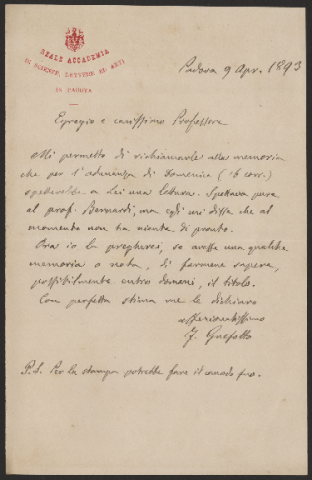 REALE ACCADEMIA
DI SCIENZE, LETTERE ED ARTI
IN PADOVA
Padova 9 Apr. 1893
Egregio e carissimo Professore
Mi permetto di richiamarle alla memoria
che per l'adunanza di Domenica (16 corr.)
spetterebbe a Lei una lettura. Spettava pure
al prof. Bernardi, ma egli mi disse che al
momento non ha niente di pronto.
Ora io la pregherei, se avesse una qualche
memoria o nota, di farmene sapere,
possibilmente entro domani, il titolo.
Con perfetta stima me le dichiaro
affezionatissimo
P.S. Per la stampa potrebbe fare il comodo suo.